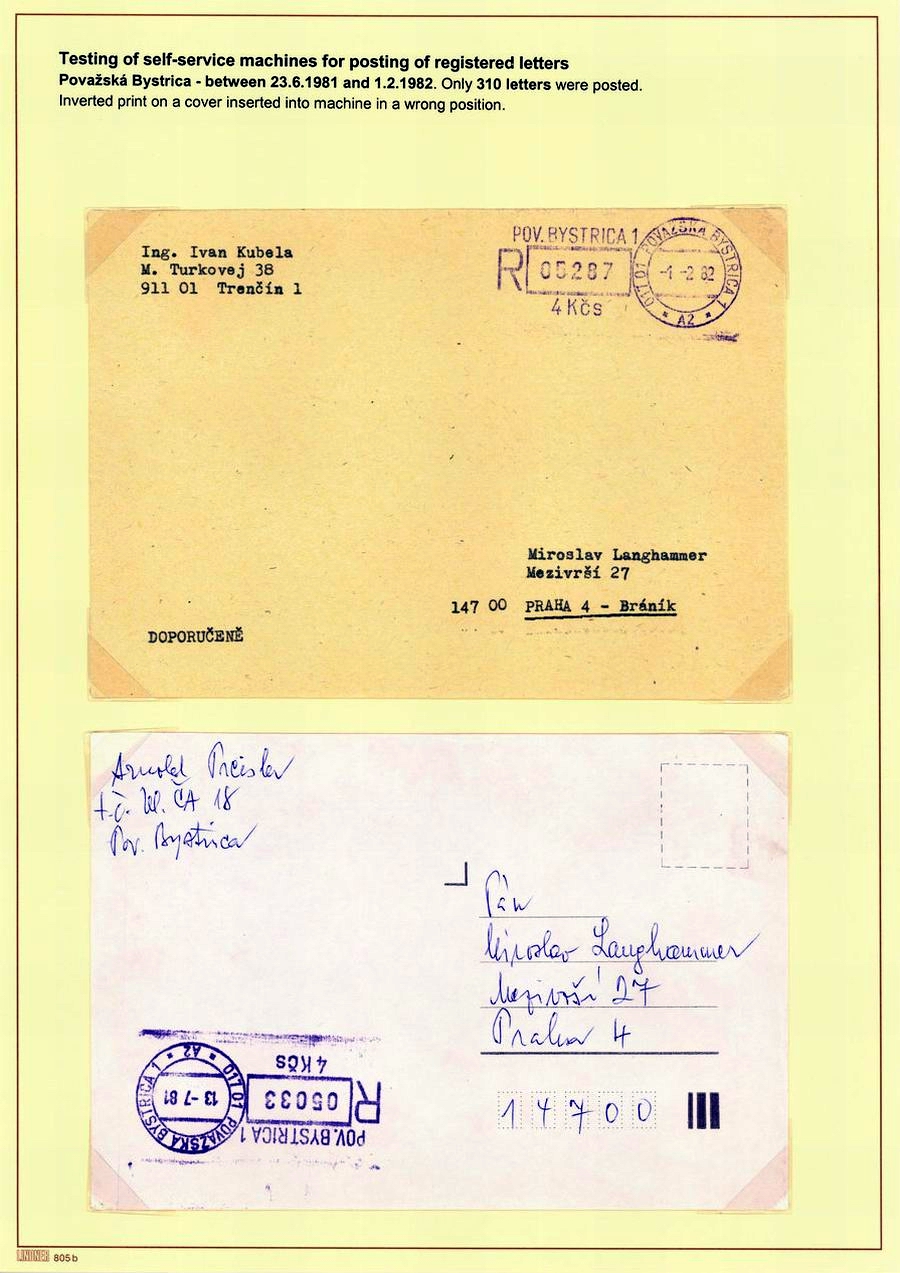 Testing of self-service machines for posting of registered letters
Považská Bystrica - between 23.6.1981 and 1.2.1982. Only 310 letters were posted.
Inverted print on a cover inserted into machine in a wrong position.
Ing. Ivan Kubela
M. Turkovej 38
911 01 Trenčín 1
POV. BYSTRICA 1
R 05287
4 Kčs
017 01 POVAŽSKÁ BYSTRICA 1
-1 -2 82
* A2 *
Miroslav Langhammer
Mezivrší 27
147 00 PRAHA 4 - Bráník
DOPORUČENĚ
Arnold Preisler
ČA 18
Pov. Bystrica
Pán
Miroslav Langhammer
Mezivrší 27
Praha 4
14700
POV. BYSTRICA 1
R 05033
4 Kčs
017 01 POVAŽSKÁ BYSTRICA 1
13 -7 81
* A2 *
LINDNER 805 b